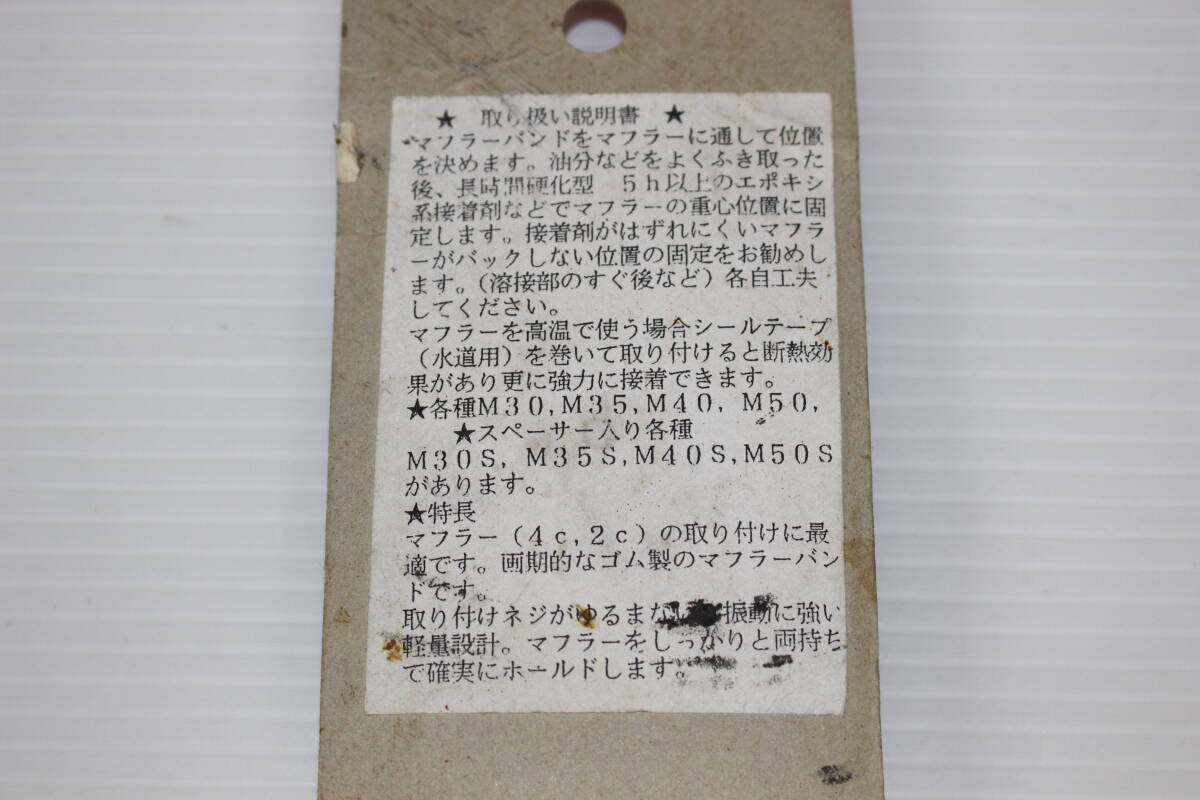 ★ 取り扱い説明書 ★
マフラーバンドをマフラーに通して位置
を決めます。油分などをよくふき取った
後、長時間硬化型 5h以上のエポキシ
系接着剤などでマフラーの重心位置に固
定します。接着剤がはずれにくいマフラ
ーがバックしない位置の固定をお勧めし
ます。(溶接部のすぐ後など)各自工夫
してください。
マフラーを高温で使う場合シールテープ
(水道用)を巻いて取り付けると断熱効
果があり更に強力に接着できます。
★各種M30,M35,M40, M50,
★スペーサー入り各種
M30S, M35S,M40S,M50S
があります。
★特長
マフラー(4c,2c)の取り付けに最
適です。画期的なゴム製のマフラーバン
ドです。
取り付けネジがゆるまない 振動に強い
軽量設計。マフラーをしっかりと両持ち
で確実にホールドします。